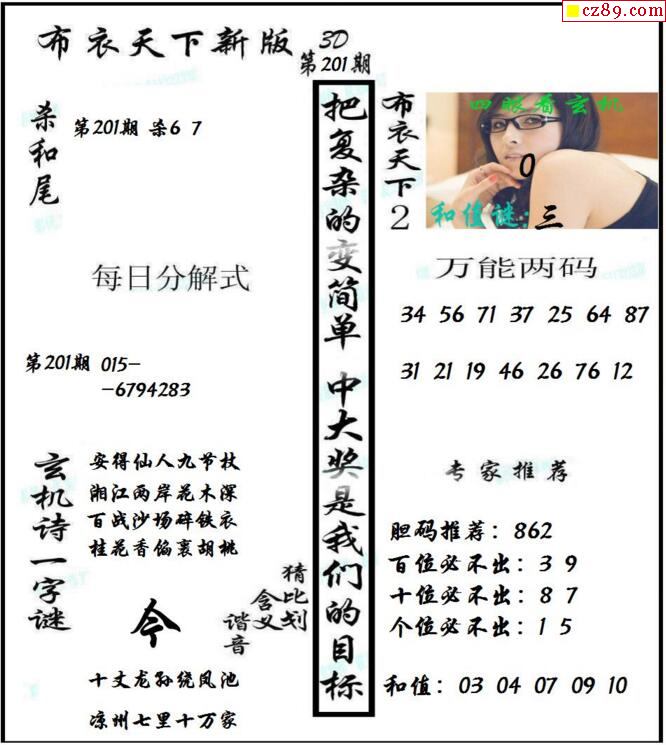 cz89.com
布衣天下新版 3D
第201期
杀和尾
第201期 杀6 7
每日分解式
第201期 015-
-6794283
玄机诗一字谜
安得仙人九节杖
湘江两岸花木深
百战沙场碎铁衣
桂花香馅裹胡桃
今
猜比划
含义
谐音
十丈龙孙绕凤池
凉州七里十万家
把复杂的变简单 中大奖是我们的目标
布衣天下2
四眼看玄机
0
和值谜:三
万能两码
34 56 71 37 25 64 87
31 21 19 46 26 76 12
专家推荐
胆码推荐：862
百位必不出：3 9
十位必不出：8 7
个位必不出：1 5
和值：03 04 07 09 10